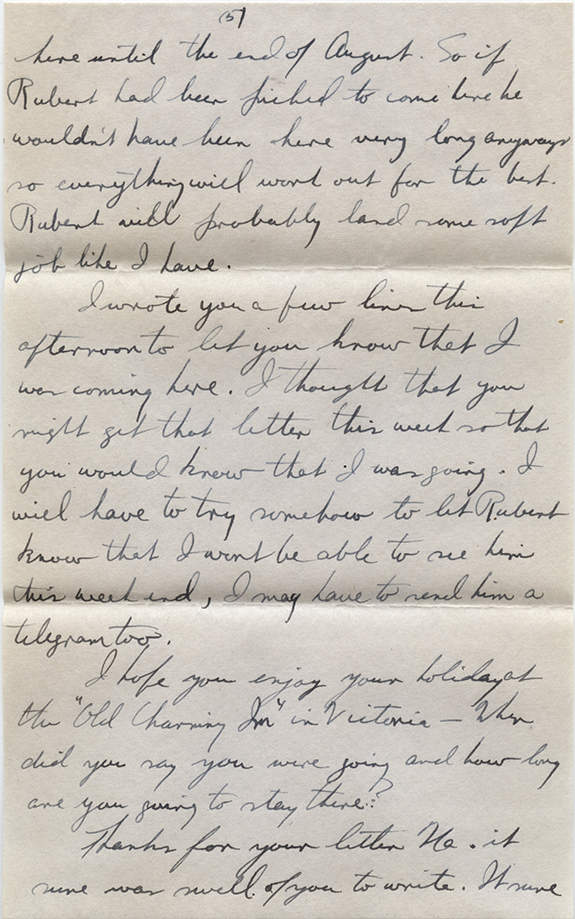 (5)
here until the end of August. So if
Rubert had been picked to come here he
wouldn't have been here very long anyways
so everything will work out for the best.
Rubert will probably land some soft
job like I have.
I wrote you a few lines this
afternoon to let you know that I
was coming here. I thought that you
might get that letter this week so that
you would know that I was going. I
will have to try somehow to let Rubert
know that I wont be able to see him
this week end, I may have to send him a
telegram too.
I hope you enjoy your holiday at
the "Old Charming Inn" in Victoria — When
did you say you were going and how long
are you going to stay there?
Thanks for your letter Ma. it
sure was swell of you to write. It sure